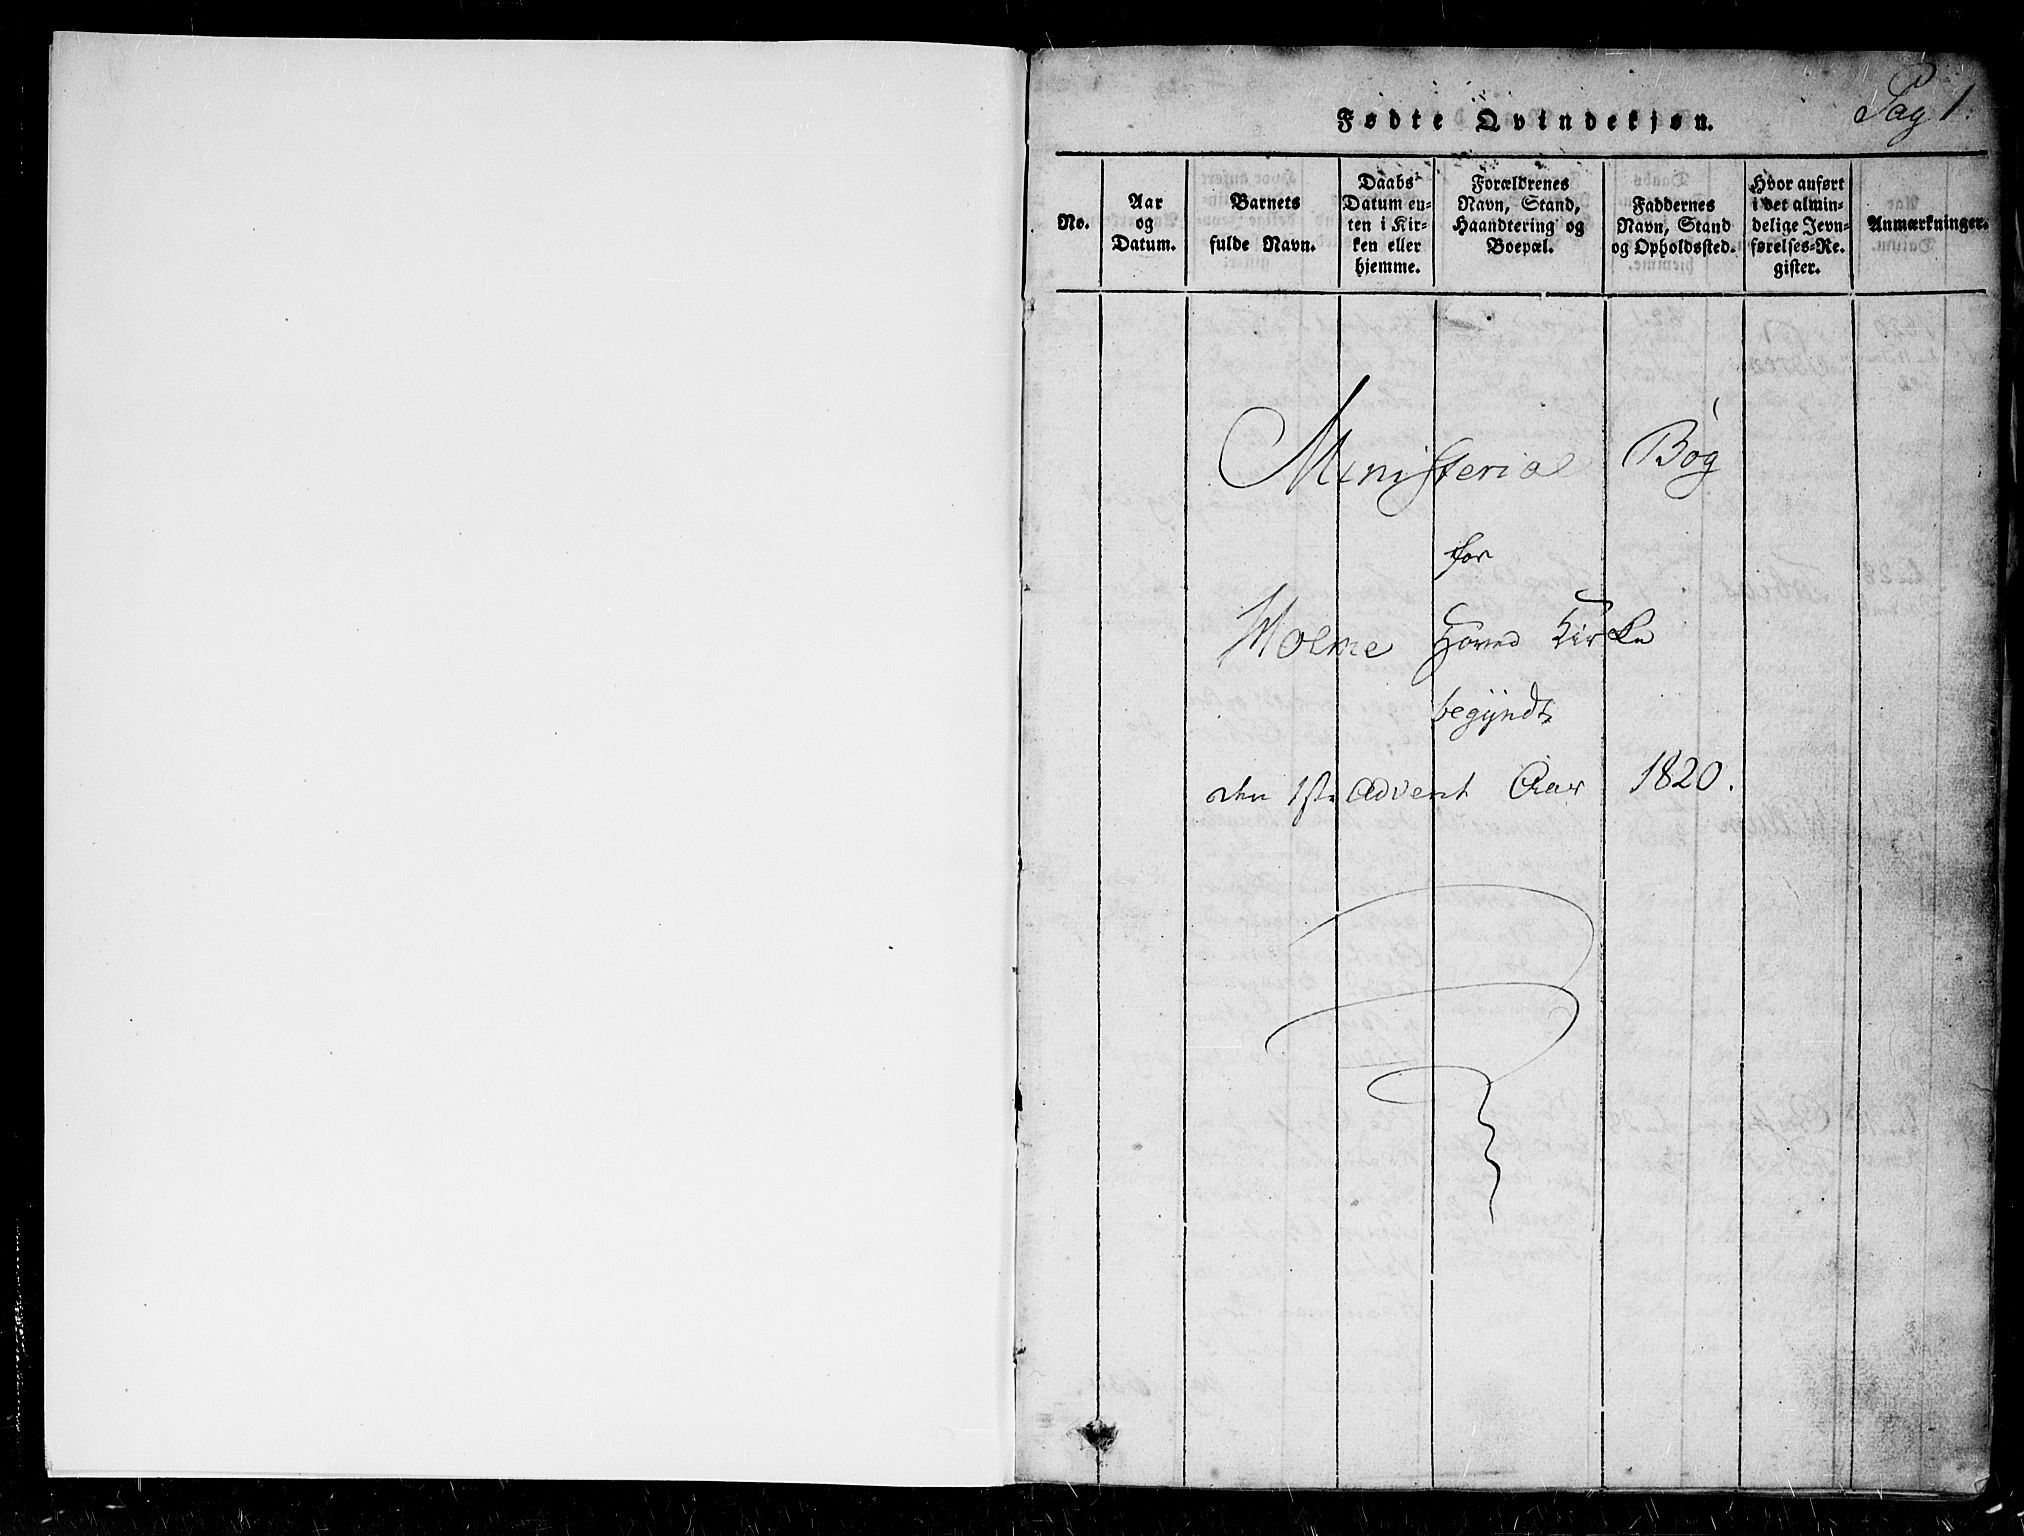 Pag 1.
Fødte Qvindekjøn.
No.
Aar
og
Datum.
Barnets
fulde Navn.
Daabs
Datum en-
ten i Kir-
ken eller
hjemme.
Forældrenes
Navn, Stand,
Haandtering og
Boepæl.
Faddernes
Navn, Stand
og Opholdssted.
Hvor anført
i det almin-
delige Jevn-
førelses-Re.
gister.
Anmærkninger.
Ministerial Bog
for
Hoved Kirke
begÿndt
den 1ste Advent Aar 1820.